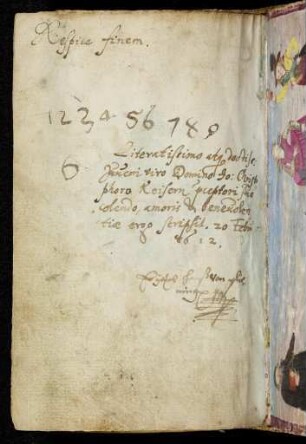 Respice finem.
1 2 3 4 5 6 7 8 9
6
Literatissimo atq doctiss.
Juveni viro Domino Jo: Christ
phoro Keisern pceptori suo
colendo, amoris & benevolen
tiæ ergo scripsit. 20 Feb:
1612.